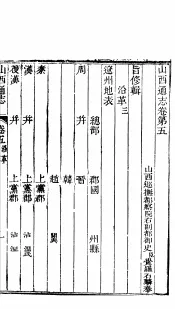 山西通志卷第五
山西巡撫都察院右副都御史覺羅石麟奉
旨修輯
沿革三
遼州地表
總部 郡國 州縣
周 并 晉
韓
趙 閼
秦 并 上黨郡
漢 并 上黨郡
後漢 并 上黨郡
山西通志 卷五